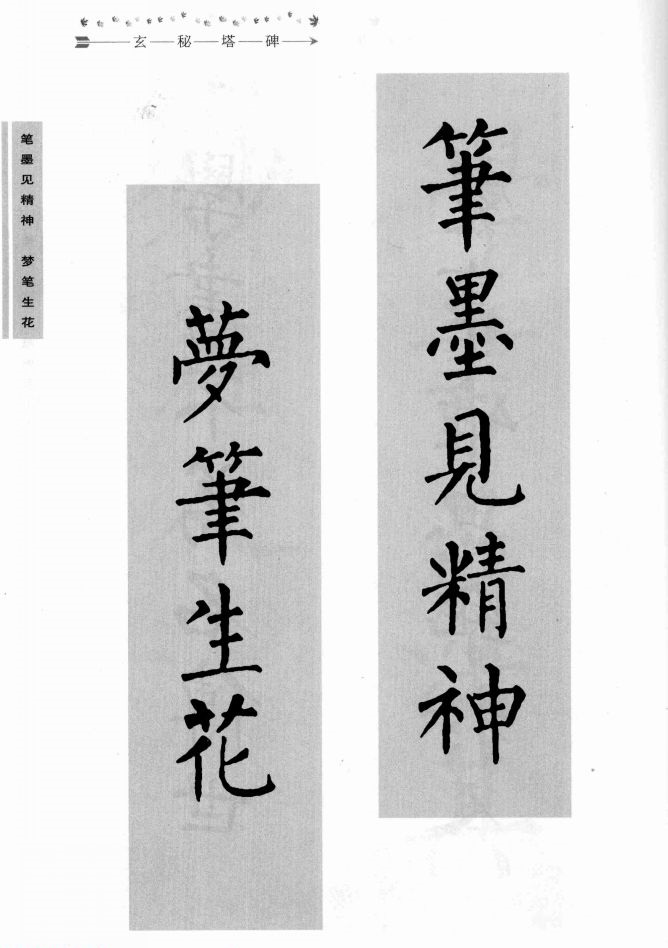 玄秘塔碑
筆墨見精神
夢筆生花
笔墨见精神 梦笔生花